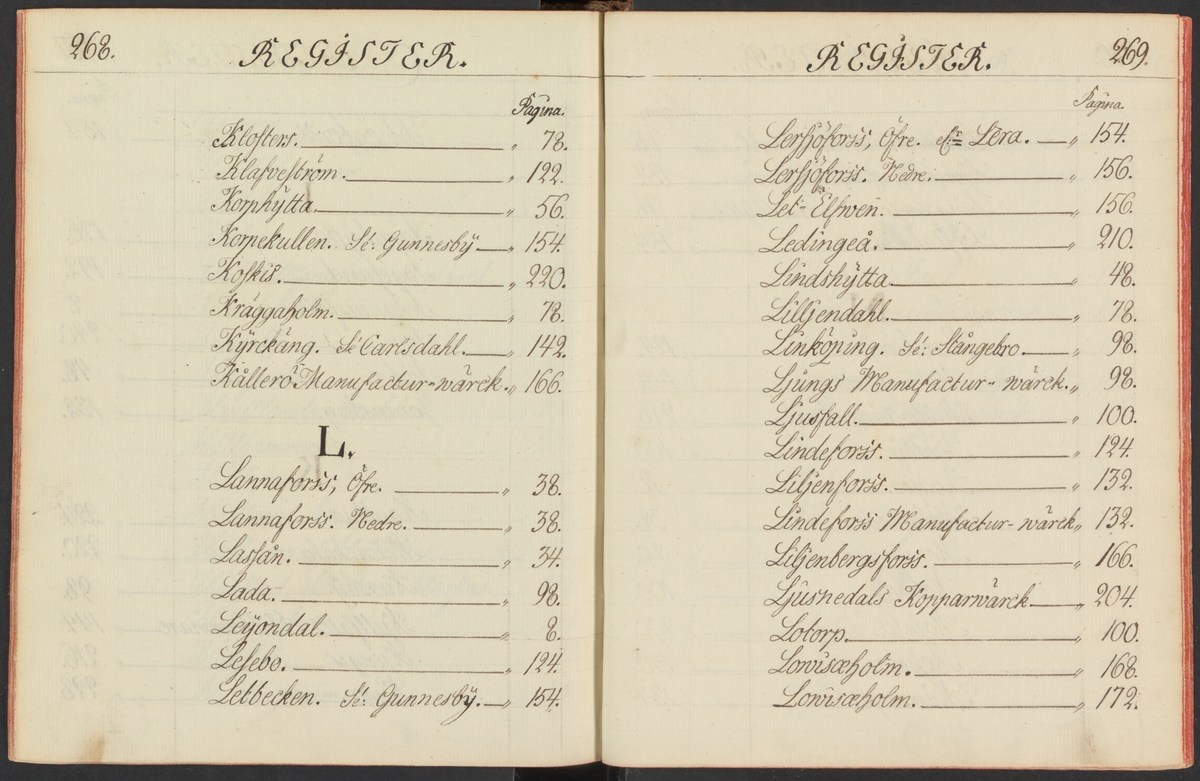 268.
REGISTER.
Pagina.
Klosters. „ 78.
Klafveström. „ 122.
Korphÿtta. „ 56.
Korpekullen. Sé: Gunnesbÿ „ 154.
Koskis. „ 220.
Kräggaholm. „ 78.
Kÿrckäng. Sé Carlsdahl. „ 142.
Kållerö Manufactur-wärck. „ 166.
L.
Lannaforss, Öfre. „ 38.
Lannaforss. Nedre. „ 38.
Lassån. „ 34.
Lada. „ 98.
Leÿondal. „ 8.
Lesebo. „ 124.
Letbecken. Sé: Gunnesbÿ. „ 154.
REGISTER.
269.
Pagina.
Lersjöforss, Öfre. Lera. „ 154.
Lersjöforss. Nedre. „ 156.
Let-Elfwen. „ 156.
Ledingeå. „ 210.
Lindshÿtta. „ 48.
Lilljendahl. „ 78.
Linköping. Sé: Stångebro. „ 98.
Ljungs Manufactur-wärck. „ 98.
Ljusfall. „ 100.
Lindeforss. „ 124.
Liljenforss. „ 132.
Lindeforss Manufactur-wärck „ 132.
Liljenbergsforss. „ 166.
Ljusnedals Kopparwärck „ 204.
Lotorp. „ 100.
Lowisæholm. „ 168.
Lowisæholm. „ 172.